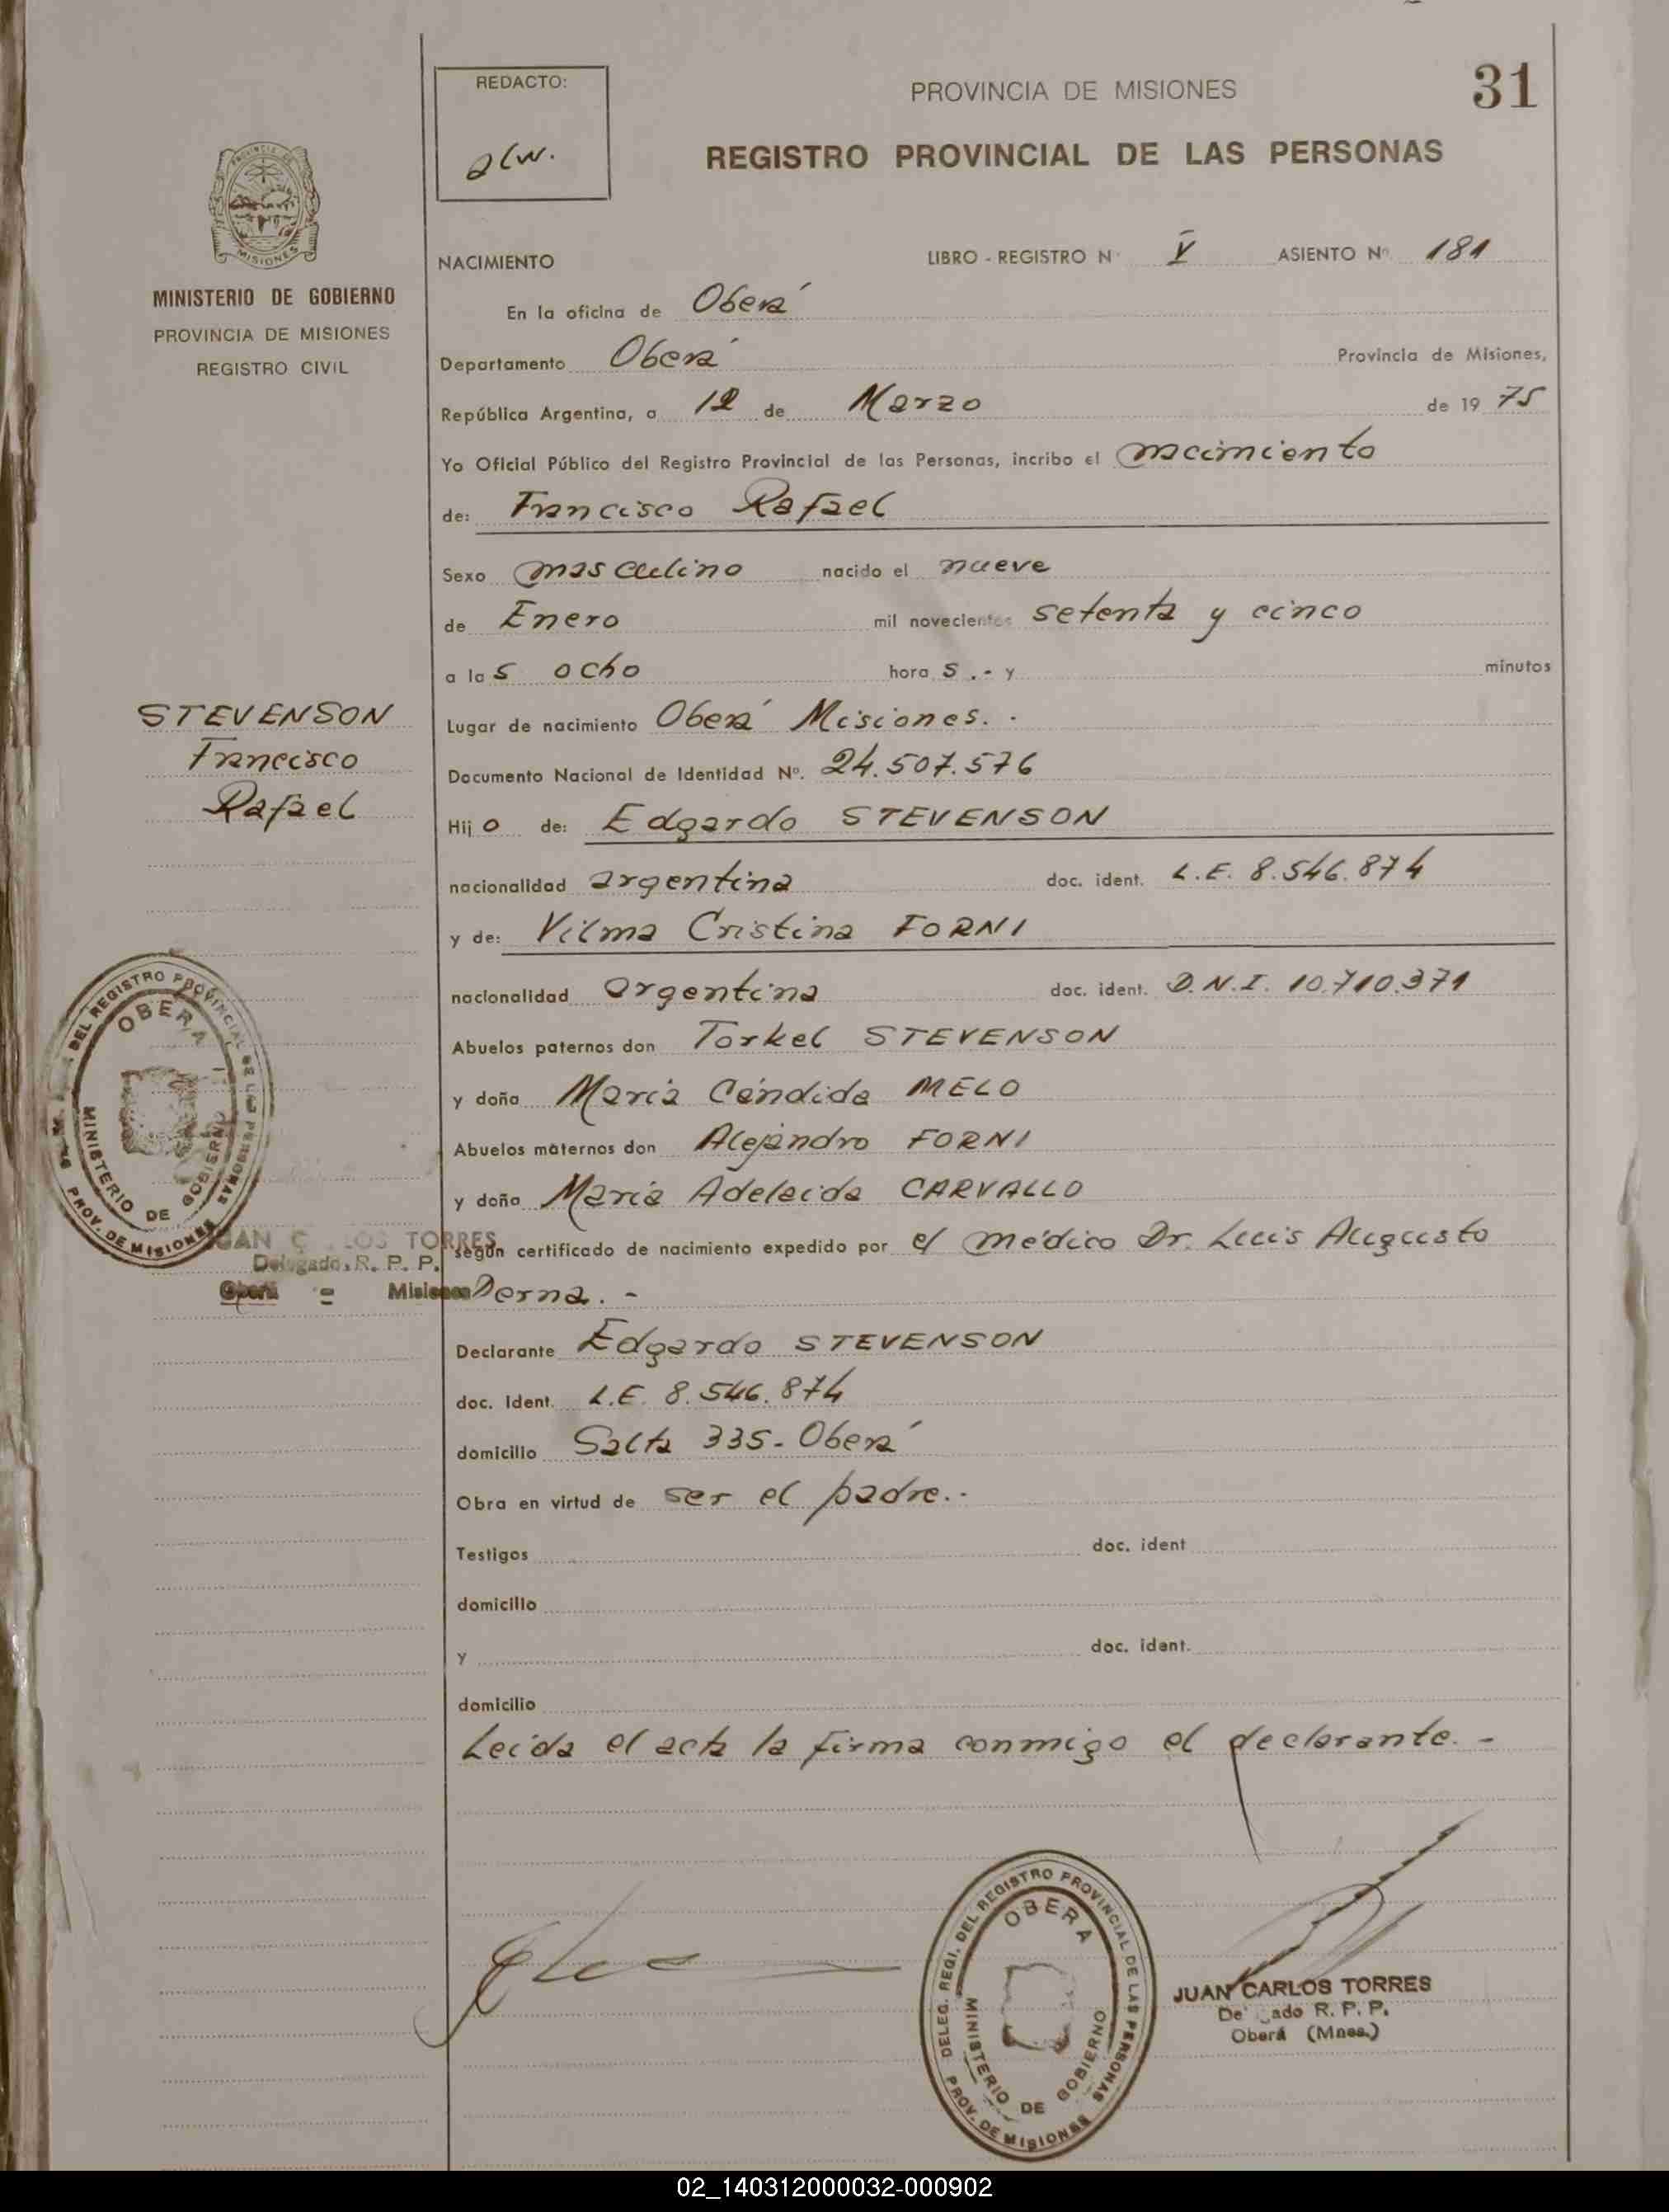 REDACTO:
PROVINCIA DE MISIONES
31
REGISTRO PROVINCIAL DE LAS PERSONAS
MISIONES
MINISTERIO DE GOBIERNO
PROVINCIA DE MISIONES
REGISTRO CIVIL
NACIMIENTO LIBRO - REGISTRO Nº V ASIENTO Nº 181
En la oficina de Oberá
Departamento Oberá Provincia de Misiones,
República Argentina, a 12 de Marzo de 19 75
Yo Oficial Público del Registro Provincial de las Personas, incribo el nacimiento
de: Francisco Rafael
Sexo masculino nacido el nueve
de Enero mil novecientos setenta y cinco
a las ocho horas.- y minutos
STEVENSON
Francisco
Rafael
Lugar de nacimiento Oberá Misiones.-
Documento Nacional de Identidad Nº. 24.507.576
Hijo de: Edgardo STEVENSON
nacionalidad argentina doc. ident. L.E. 8.546.874
y de: Vilma Cristina FORNI
nacionalidad argentina doc. ident. D.N.I. 10.710.371
Abuelos paternos don Torkel STEVENSON
y doña María Cándida MELO
Abuelos maternos don Alejandro FORNI
y doña María Adelaida CARVALLO
según certificado de nacimiento expedido por el médico Dr. Luis Augusto
Derna.-
DEL REGISTRO PROVINCIAL DE LAS PERSONAS
OBERA
MINISTERIO DE GOBIERNO
PROV. DE MISIONES
JUAN CARLOS TORRES
Delegado R. P. P.
Oberá - Misiones
Declarante Edgardo STEVENSON
doc. Ident. L.E. 8.546.874
domicilio Salta 335 - Oberá
Obra en virtud de ser el padre.-
Testigos doc. ident
domicilio
y doc. ident.
domicilio
Leída el acta la firma conmigo el declarante.-
DELEG. REGI. DEL REGISTRO PROVINCIAL DE LAS PERSONAS
OBERA
MINISTERIO DE GOBIERNO
PROV. DE MISIONES
JUAN CARLOS TORRES
Delegado R. P. P.
Oberá (Mnes.)
02_140312000032-000902